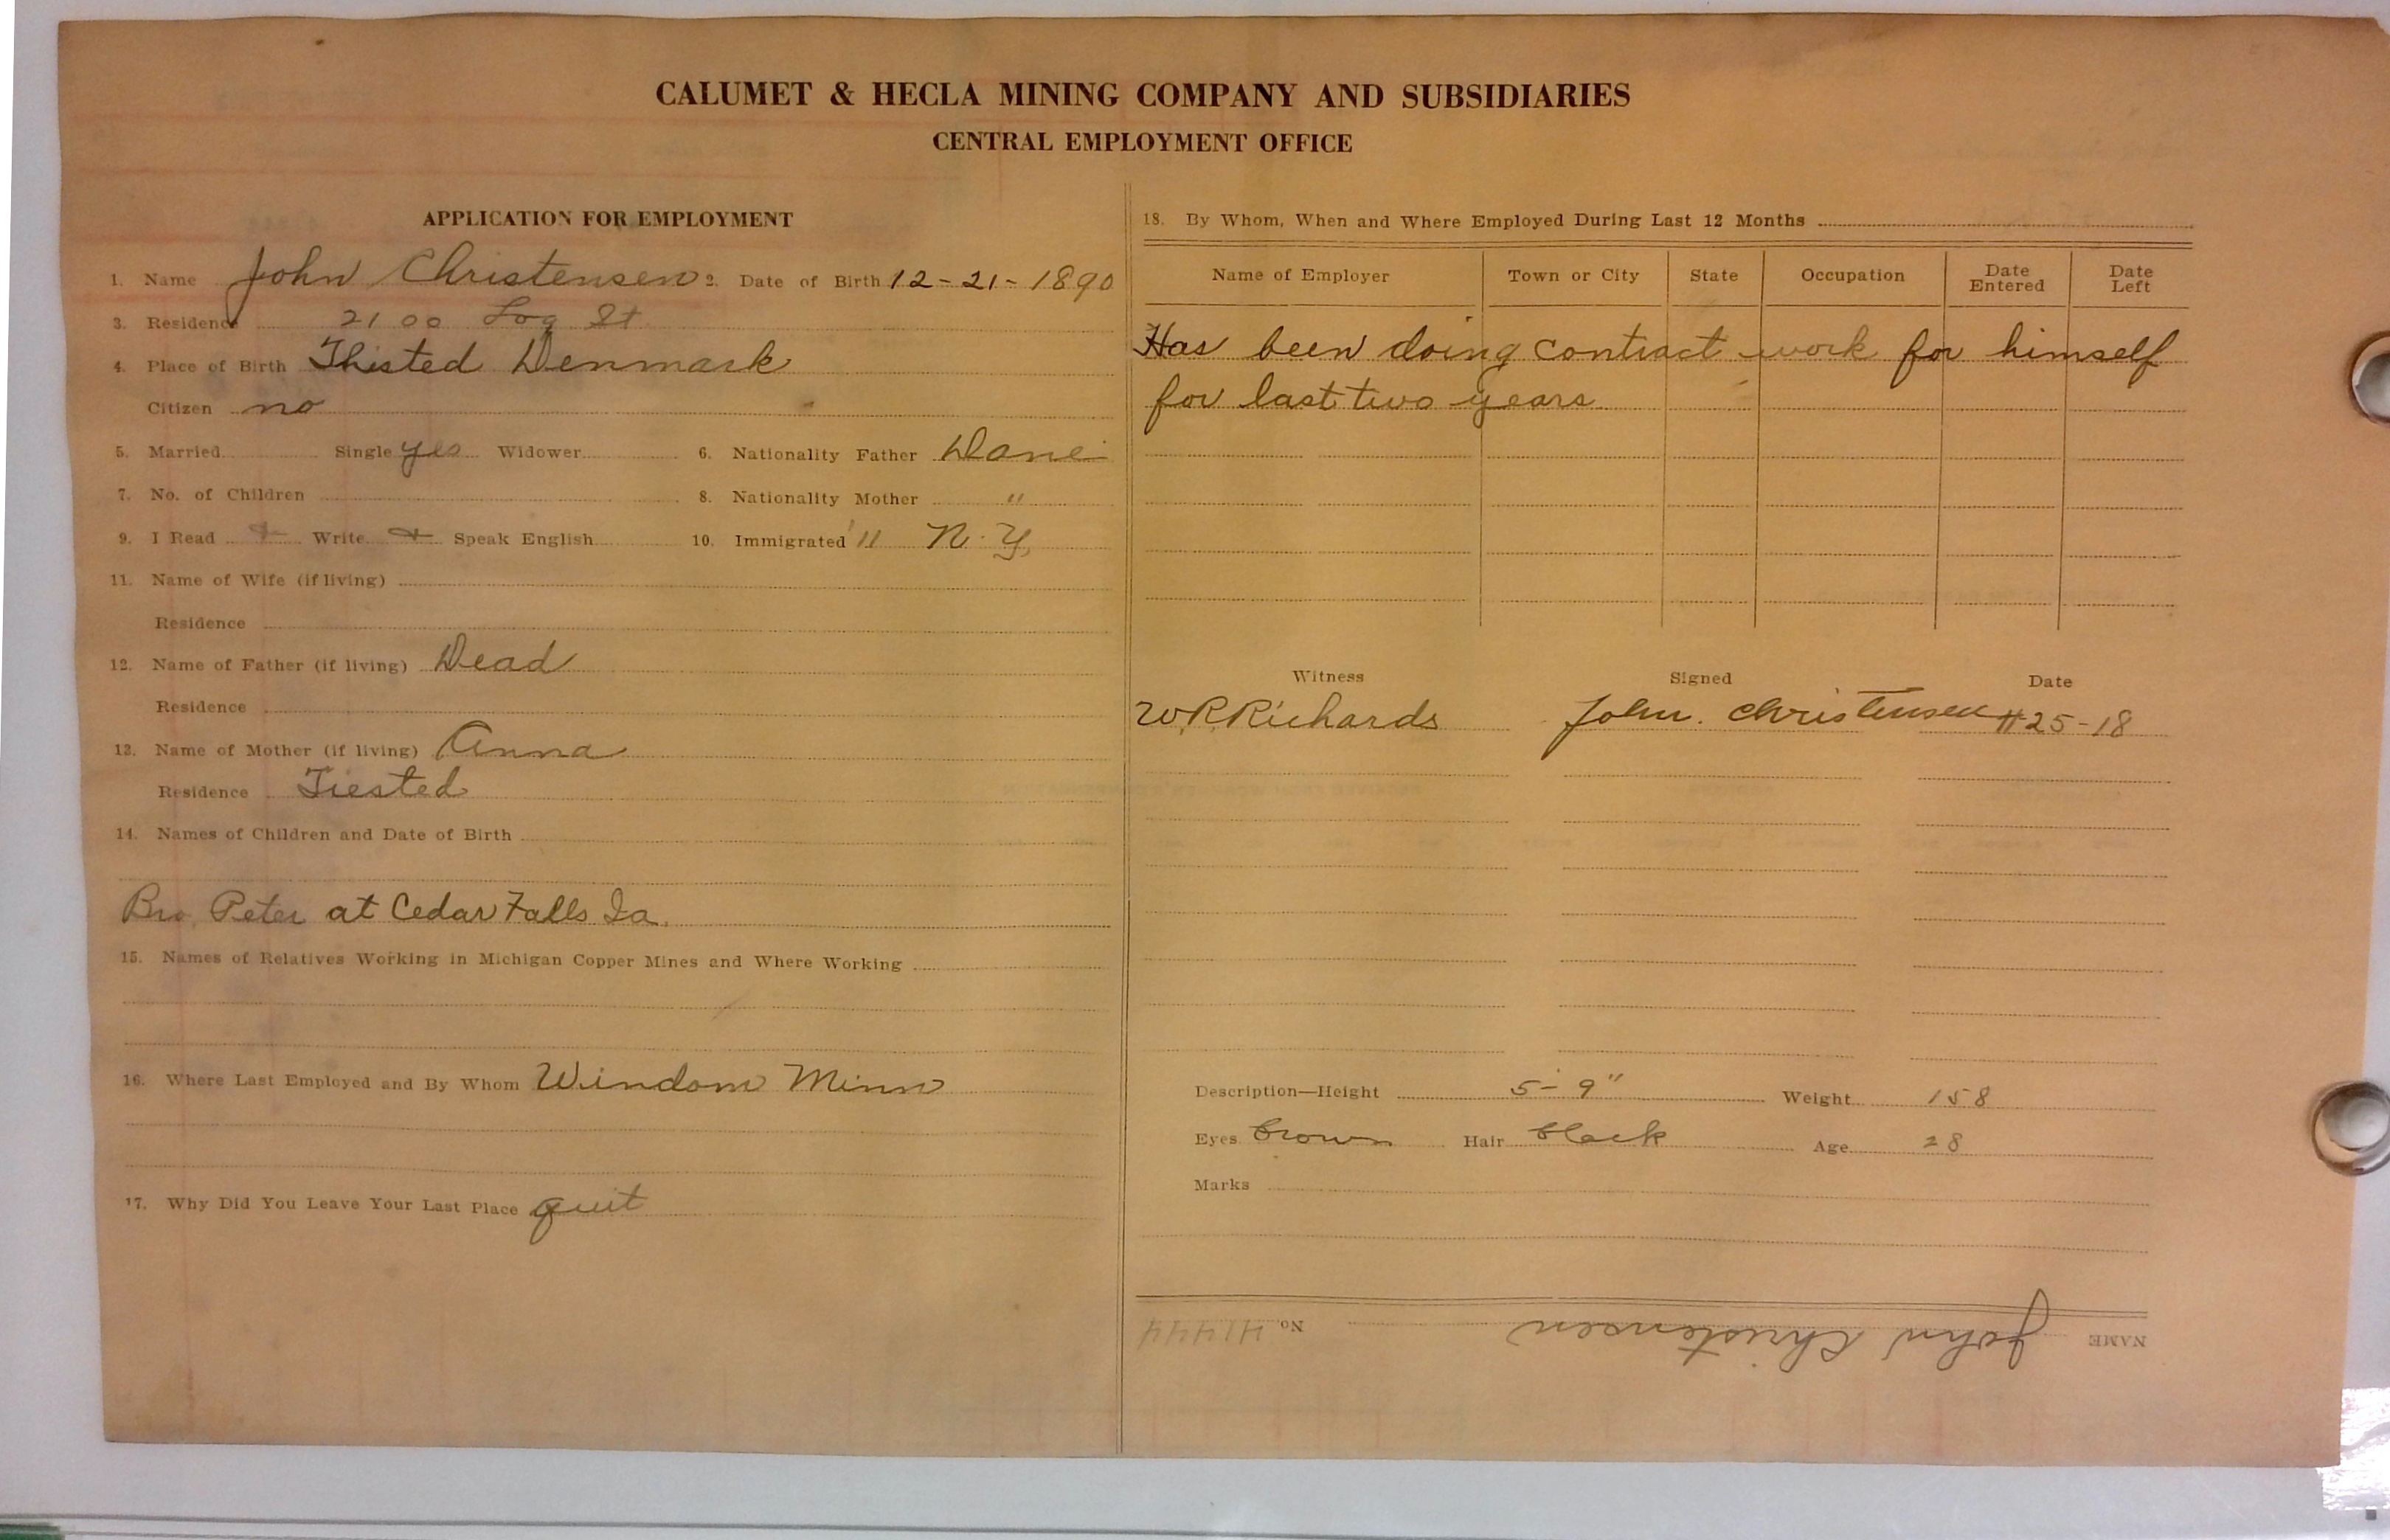 CALUMET & HECLA MINING COMPANY AND SUBSIDIARIES
CENTRAL EMPLOYMENT OFFICE
APPLICATION FOR EMPLOYMENT
1. Name John Christensen 2. Date of Birth 12-21-1890
3. Residence 2100 Log St
4. Place of Birth Thisted Denmark
Citizen no
5. Married Single yes Widower 6. Nationality Father Dane
7. No. of Children 8. Nationality Mother "
9. I Read Write Speak English 10. Immigrated '11 N.Y.
11. Name of Wife (if living)
Residence
12. Name of Father (if living) Dead
Residence
13. Name of Mother (if living) Anna
Residence Tiested
14. Names of Children and Date of Birth
Bro. Peter at Cedar Falls Ia.
15. Names of Relatives Working in Michigan Copper Mines and Where Working
16. Where Last Employed and By Whom Windom Minn
17. Why Did You Leave Your Last Place quit
18. By Whom, When and Where Employed During Last 12 Months
Name of Employer Town or City State Occupation Date Entered Date Left
Has been doing contract work for himself
for last two years
Witness Signed Date
W.R. Richards John. Christensen 25-18
Description—Height 5-9" Weight 158
Eyes brown Hair black Age 28
Marks
NAME John Christensen No. 41444